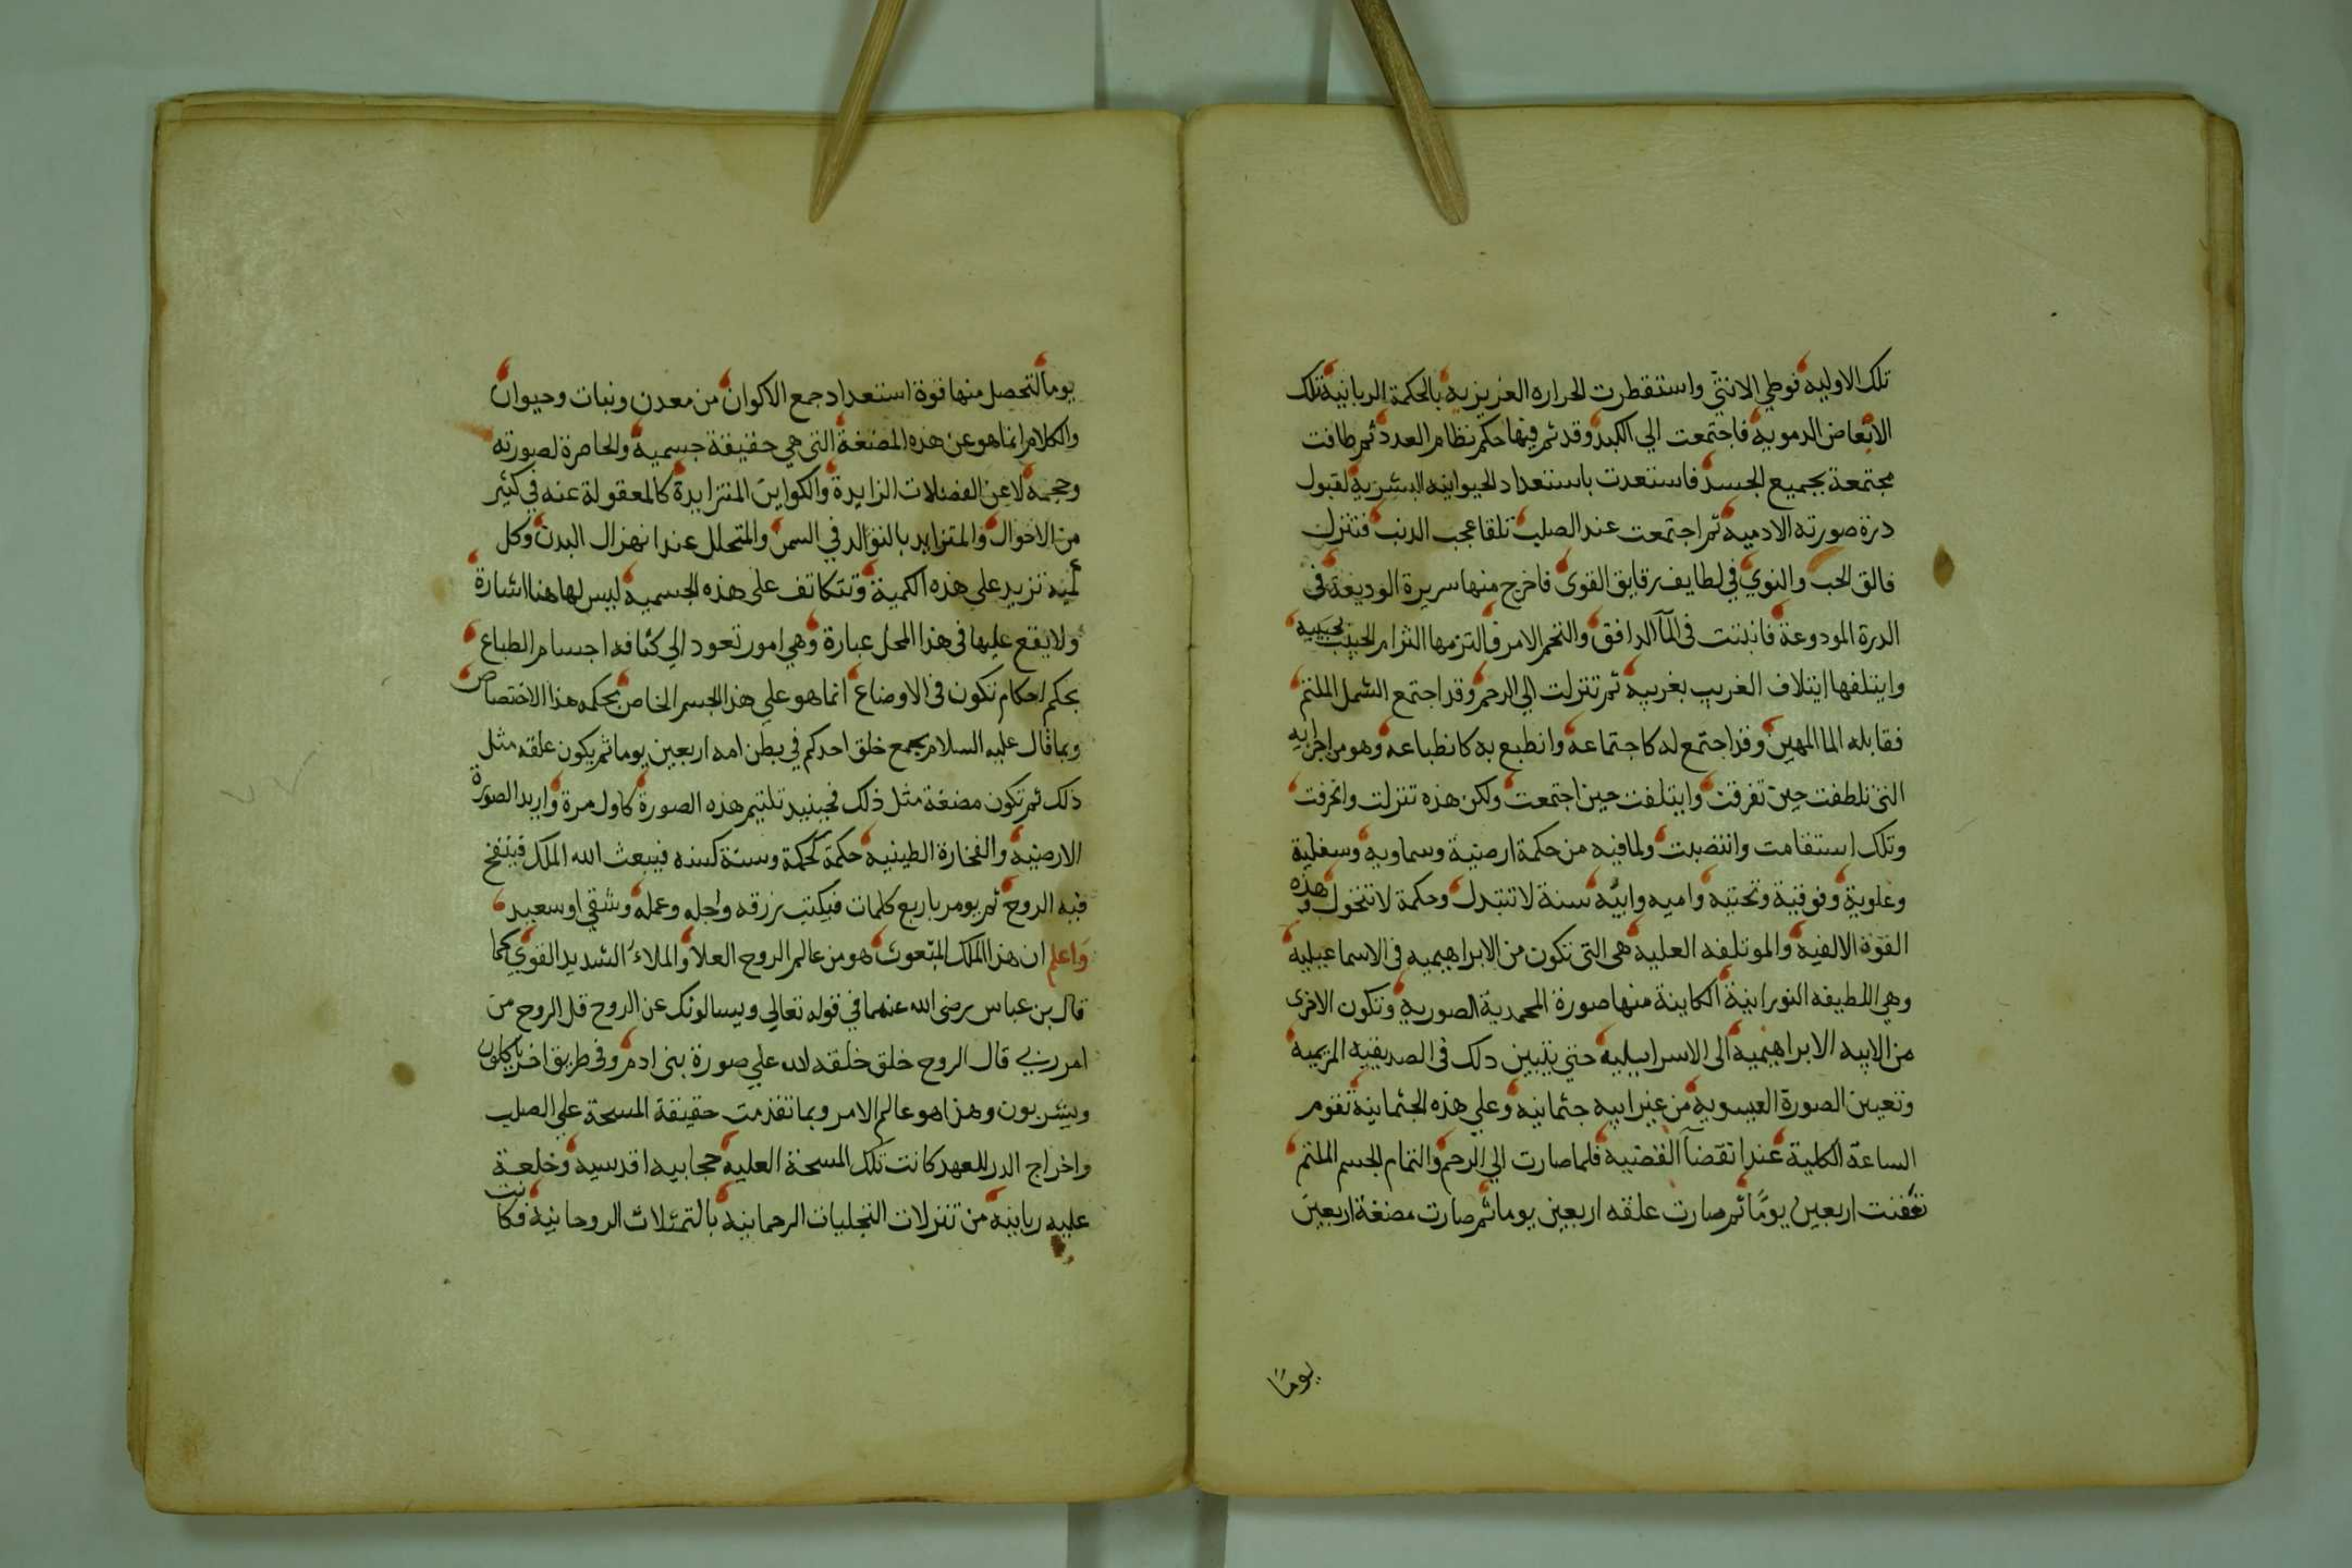 تلك الاوليه فوطي الانثي واستقطرت الحراره الغريزيه بالحكمة الربانية تلك
الابعاض الدمويه فاجتمعت الي الكبد وقد تم فيها حكم نظام العدد ثم طافت
مجتمعة بجميع الجسد فاستعدت باستعداد الحيوانيه البشرية لقبول
درة صورته الادميه ثم اجتمعت عند الصلب تلقا عجب الذنب فتنزل
فالق الحب والنوي في لطايف رقايق القوي فاخرج منها سريرة الوديعة في
الدرة المودوعة فانبتت في المآ الدافق والتحم الامر والتزمها التزام الحبيب لحبيبه
وايتلفها ايتلاف الغريب بغريبه ثم تنزلت الي الرحم وقد اجتمع الشمل الملتم
فقابله الما المهين وقد اجتمع له كاجتماعه وانطبع به كانطباعه وهو من اجزايه
التي تلطفت حين تفرقت وايتلفت حين اجتمعت ولكن هذه تنزلت وانحرفت
وتلك استقامت وانتصبت ولما فيه من حكمة ارضية وسماويه وسفلية
وعلوية وفوقية وتحتيه واميه وابيه سنة لا تتبدل وحكمة لا تتحول وهذه
القوة الالفيه والموتلفه العليه هي التي تكون من الابراهيميه في الاسماعيليه
وهي اللطيفه النورانية الكاينة منها صورة المحمدية الصوريه وتكون الاخري
من الابيه الابراهيميه الي الاسراييليه حتي يتبين ذلك في الصديقيه المريميه
وتعين الصورة العيسويه من غير ابيه جثمانيه وعلي هذه الجثمانية تقوم
الساعة الكلية عند انقضآ القضيه فلما صارت الي الرحم والتمام الجسم الملتم
تعفنت اربعين يومًا ثم صارت علقه اربعين يوما ثم صارت مضغة اربعين
يومًا
يوما لتحصل منها قوة استعداد جمع الاكوان من معدن ونبات وحيوان
والكلام انما هو عن هذه المضغة التي هي حقيقة جسميه والحاصرة لصورته
وحجمه لا عن الفضلات الزايدة والكواين المتزايدة كالمعقولة عنه في كثير
من الاحوال والمتزايد بالتوالد في السمن والمتحلل عند انهزال البدن وكل
كمية تزيد علي هذه الكمية وتتكاثف علي هذه الجسميه ليس لها هنا اشارة
ولا يقع عليها في هذا المحل عبارة وهي امور تعود الي كثافه اجسام الطباع
بحكم احكام تكون في الاوضاع انما هو علي هذا الجسم الخاص بحكم هذا الاختصاص
وبما قال عليه السلام يجمع خلق احدكم في بطن امه اربعين يوما ثم يكون علقه مثل
ذلك ثم تكون مضغة مثل ذلك فحينيد تلتيم هذه الصورة كاول مرة واريد الصورة
الارضيه والفخارة الطينيه حكمة كحكمة وسنة كسنه فيبعث الله الملك فينفخ
فيه الروح ثم يومر باربع كلمات فيكتب رزقه واجله وعمله وشقي او سعيد
واعلم ان هذا الملك المبعوث هو من عالم الروح العلا والملاء الشديد القوي كما
قال بن عباس رضي الله عنهما في قوله تعالي ويسالونك عن الروح قل الروح من
امر ربي قال الروح خلق خلقه الله علي صورة بني ادم وفي طريق اخر ياكلون
ويشربون وهذا هو عالم الامر وبما تقدمت حقيقة المسحة علي الصلب
واخراج الدر للعهد كانت تلك المسحة العليه حجابيه اقدسية وخلعة
عليه ربانيه من تنزلات التجليات الرحمانيه بالتمثلات الروحانية فكانت